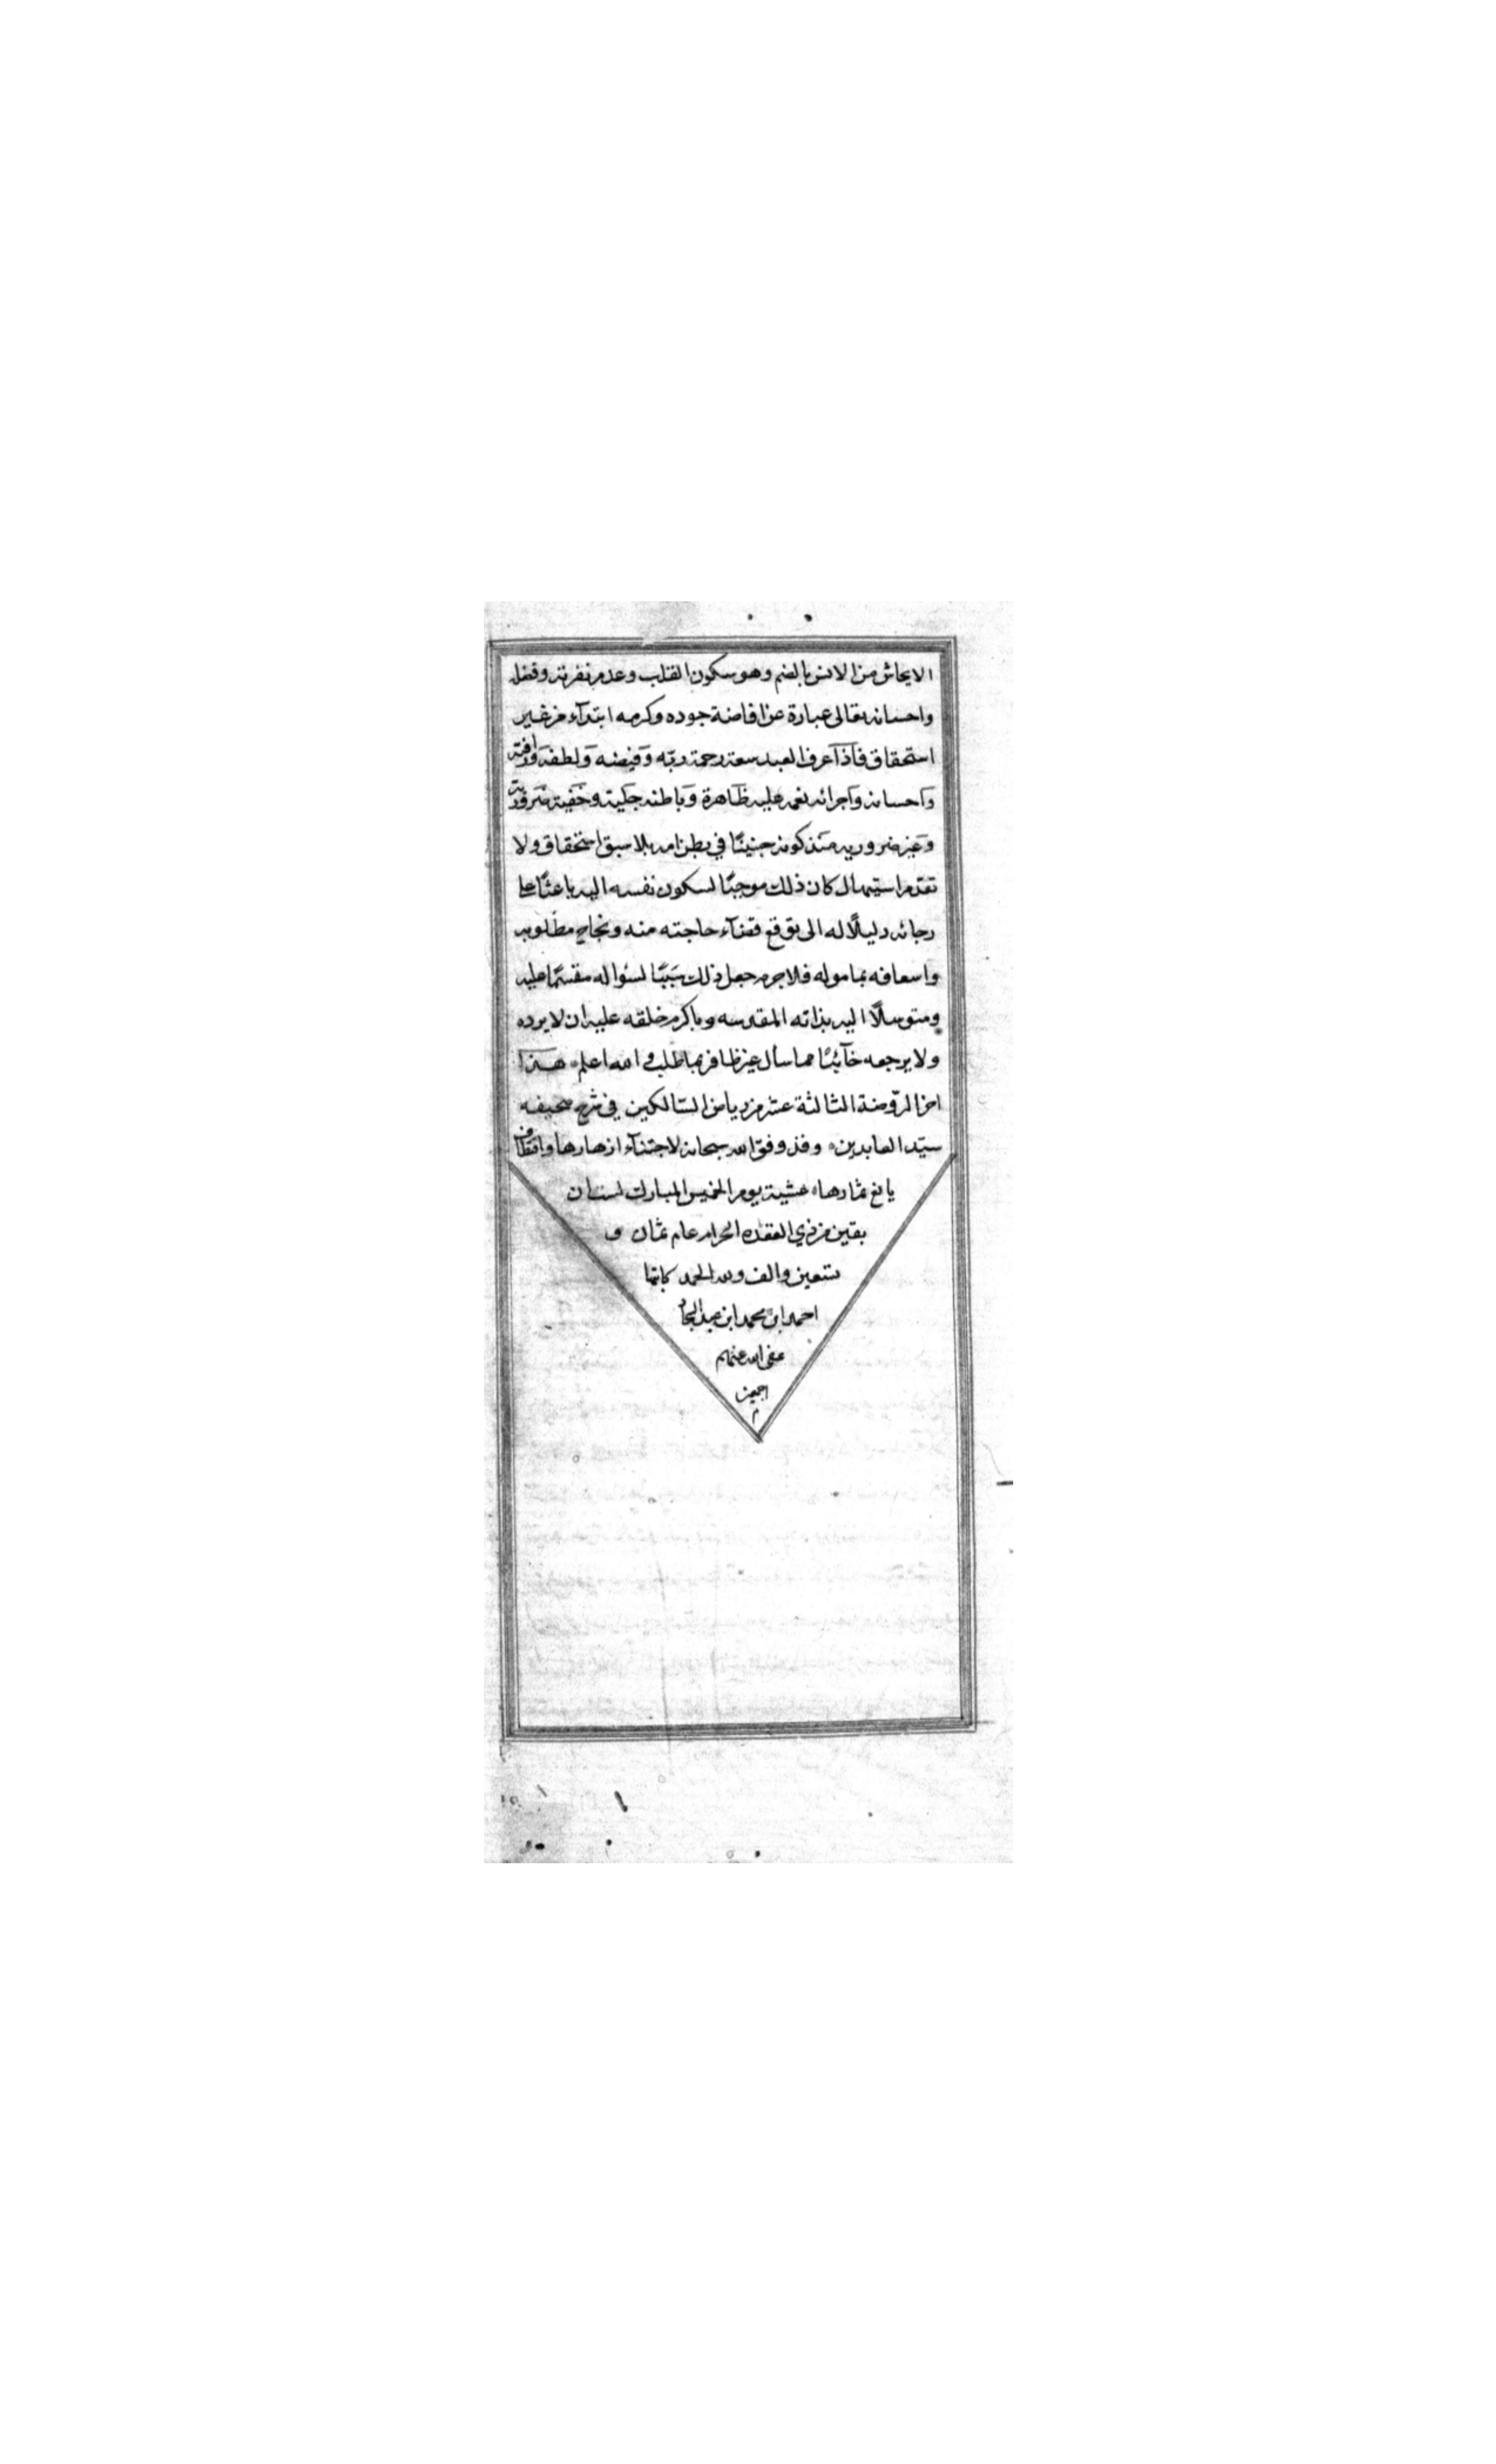 الايحاش من الانس بالضم وهو سكون القلب وعدم نفرته وفضله
واحسانه تعالى عبارة عن افاضة جوده وكرمه ابتدآء من غير
استحقاق فاذا عرف العبد سعة رحمة ربّه وفيضه ولطفه ورافته
واحسانه واجرائه نعمه عليه ظاهرة وباطنه جليّة وخفيّة ضروريّة
وغير ضروريه منذ كونه جنينًا في بطن امه بلا سبق استحقاق ولا
تقدم استيهال كان ذلك موجبًا لسكون نفسه اليه باعثًا على
رجائه دليلًا له الى توقع قضآء حاجته منه ونجاح مطلوبه
واسعافه بماموله فلا جرم جعل ذلك سببًا لسؤاله مقسمًا عليه
ومتوسلًا اليه بذاته المقدسه وباكرم خلقه عليه ان لا يرده
ولا يرجعه خآئبًا مما سأل غير ظافر بما طلب والله اعلم هـذا
اخر الروّضة الثالثة عشر من رياض السّالكين في شرح صحيفه
سيّد العابدين وقد وفق الله سبحانه لاجتنآء ازهارها واقتطاف
يانع ثمارها عشية يوم الخميس المبارك لثمان
بقين من ذي العقده الحرام عام ثمان و
تسعين والف ولله الحمد كاتبها
احمد ابن محمد ابن عبد الجواد
عفى الله عنهم
اجمعين
م